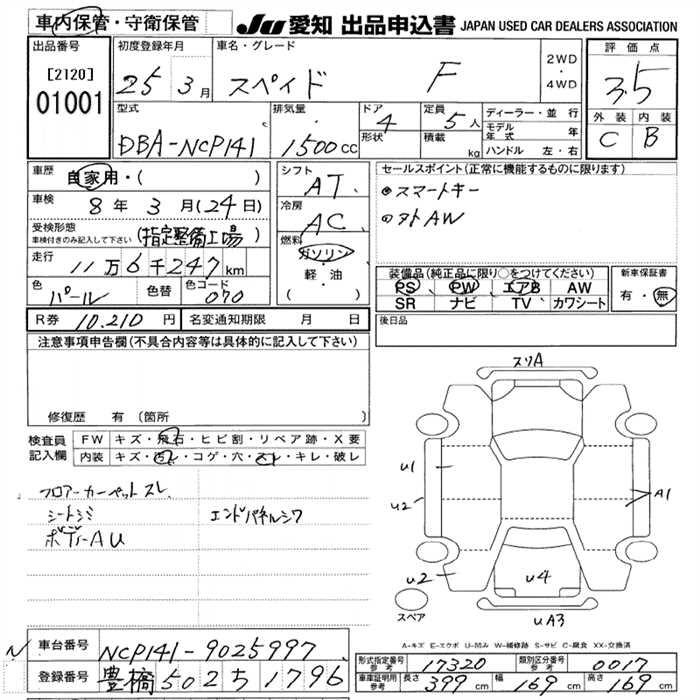 車内保管・守衛保管
JU 愛知 出品申込書 JAPAN USED CAR DEALERS ASSOCIATION
出品番号
[2120]
01001
初度登録年月
25年3月
車名・グレード
スペイド F
2WD
・
4WD
評価点
3.5
外装 内装
C B
型式
DBA-NCP141
排気量
1500cc
ドア
4
形状
定員
5人
積載
kg
ディーラー・並行
モデル年式 年
ハンドル 左・右
車歴
自家用・( )
車検
8年3月(24日)
受検形態
車検付きのみ記入して下さい
(指定整備工場)
走行
11万6千247km
色
パール
色替
色コード
070
シフト
AT
冷房
AC
燃料
ガソリン
・
軽・油
( )
セールスポイント(正常に機能するものに限ります)
●スマートキー
●ヌトAW
装備品(純正品に限り○をつけてください)
PS PW エアB AW
SR ナビ TV カワシート
新車保証書
有・無
R券 10,210円
名変通知期限 月 日
後日品
注意事項申告欄(不具合内容等は具体的に記入して下さい)
修復歴 有(箇所 )
検査員
記入欄
FW キズ・飛石・ヒビ割・リペア跡・X要
内装 キズ・汚レ・コゲ・穴・スレ・キレ・破レ
フロアーカーペットスレ
シートシミ
ボデーAU
エンドパネルシワ
スリA
U1
U2
A1
U2
U4
UA3
スペア
A-キズ E-エクボ U-凹み W-補修跡 S-サビ C-腐食 XX-交換済
N
車台番号 NCP141-9025997
登録番号 豊橋 502 さ 1796
形式指定番号
参考
17320
類別区分番号
参考
0017
車庫証明用
参考
長さ 399cm 幅 169cm 高さ 169cm